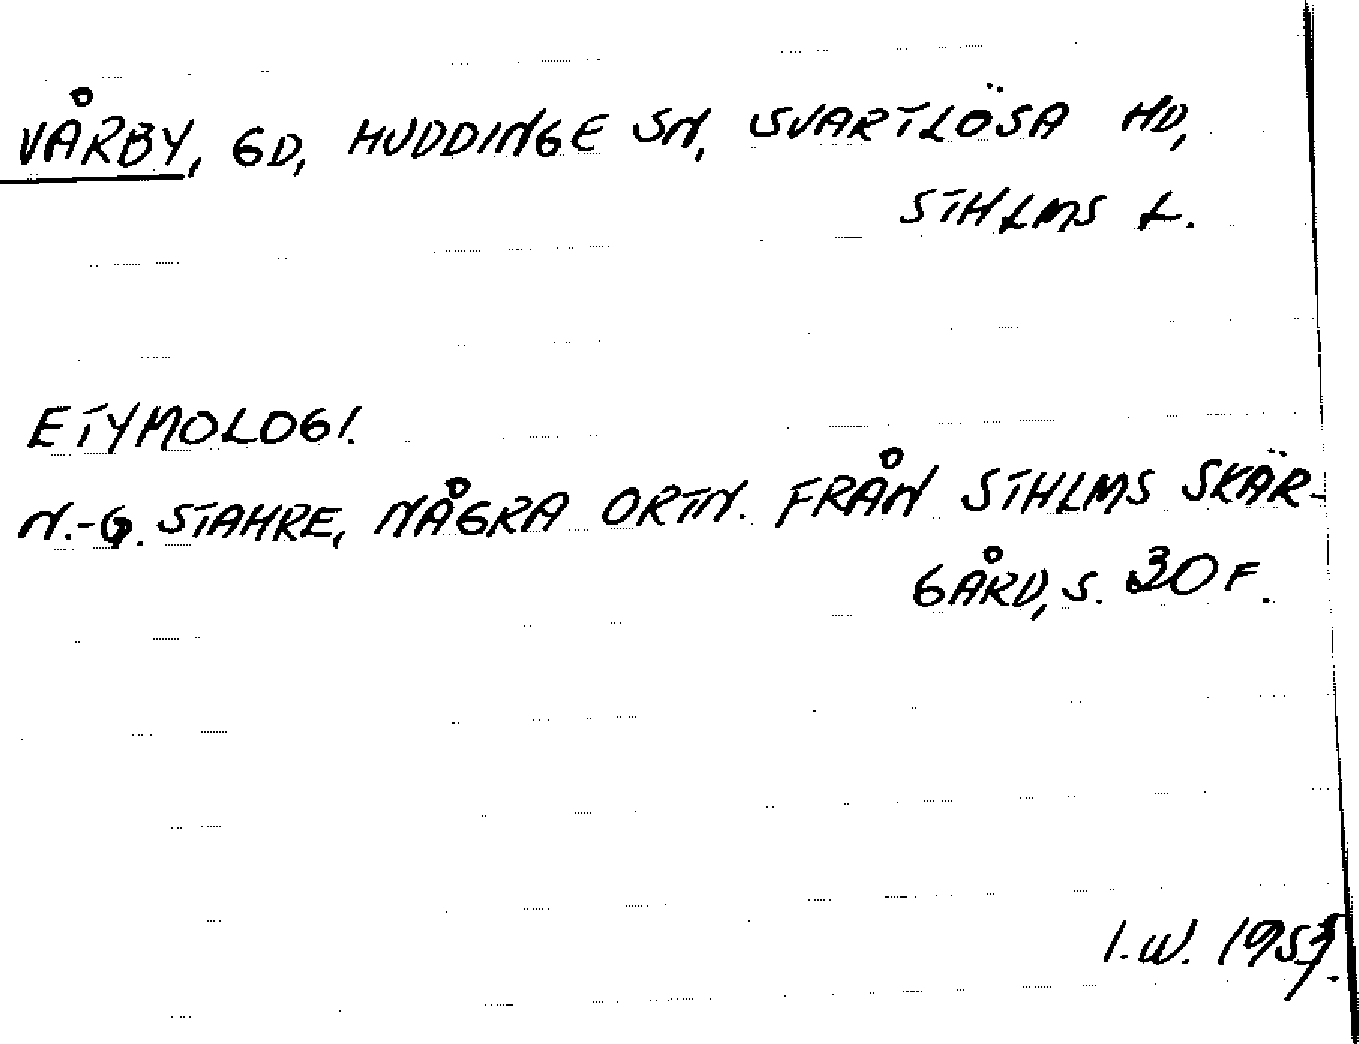 VÅRBY, GD, HUDDINGE SN, SVARTLÖSA HD,
STHLMS L.
ETYMOLOGI.
N.-G. STAHRE, NÅGRA ORTN. FRÅN STHLMS SKÄR-
GÅRD, S. 30 F.
I.W.